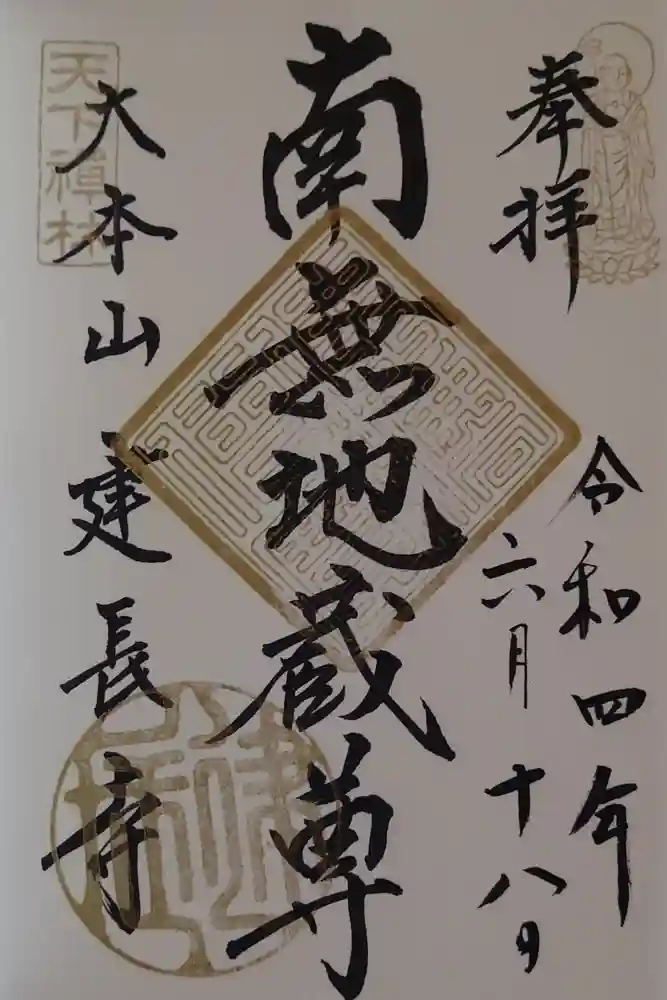 奉拝
令和四年
六月十八日
南無地蔵尊
天下禅林
大本山建長寺